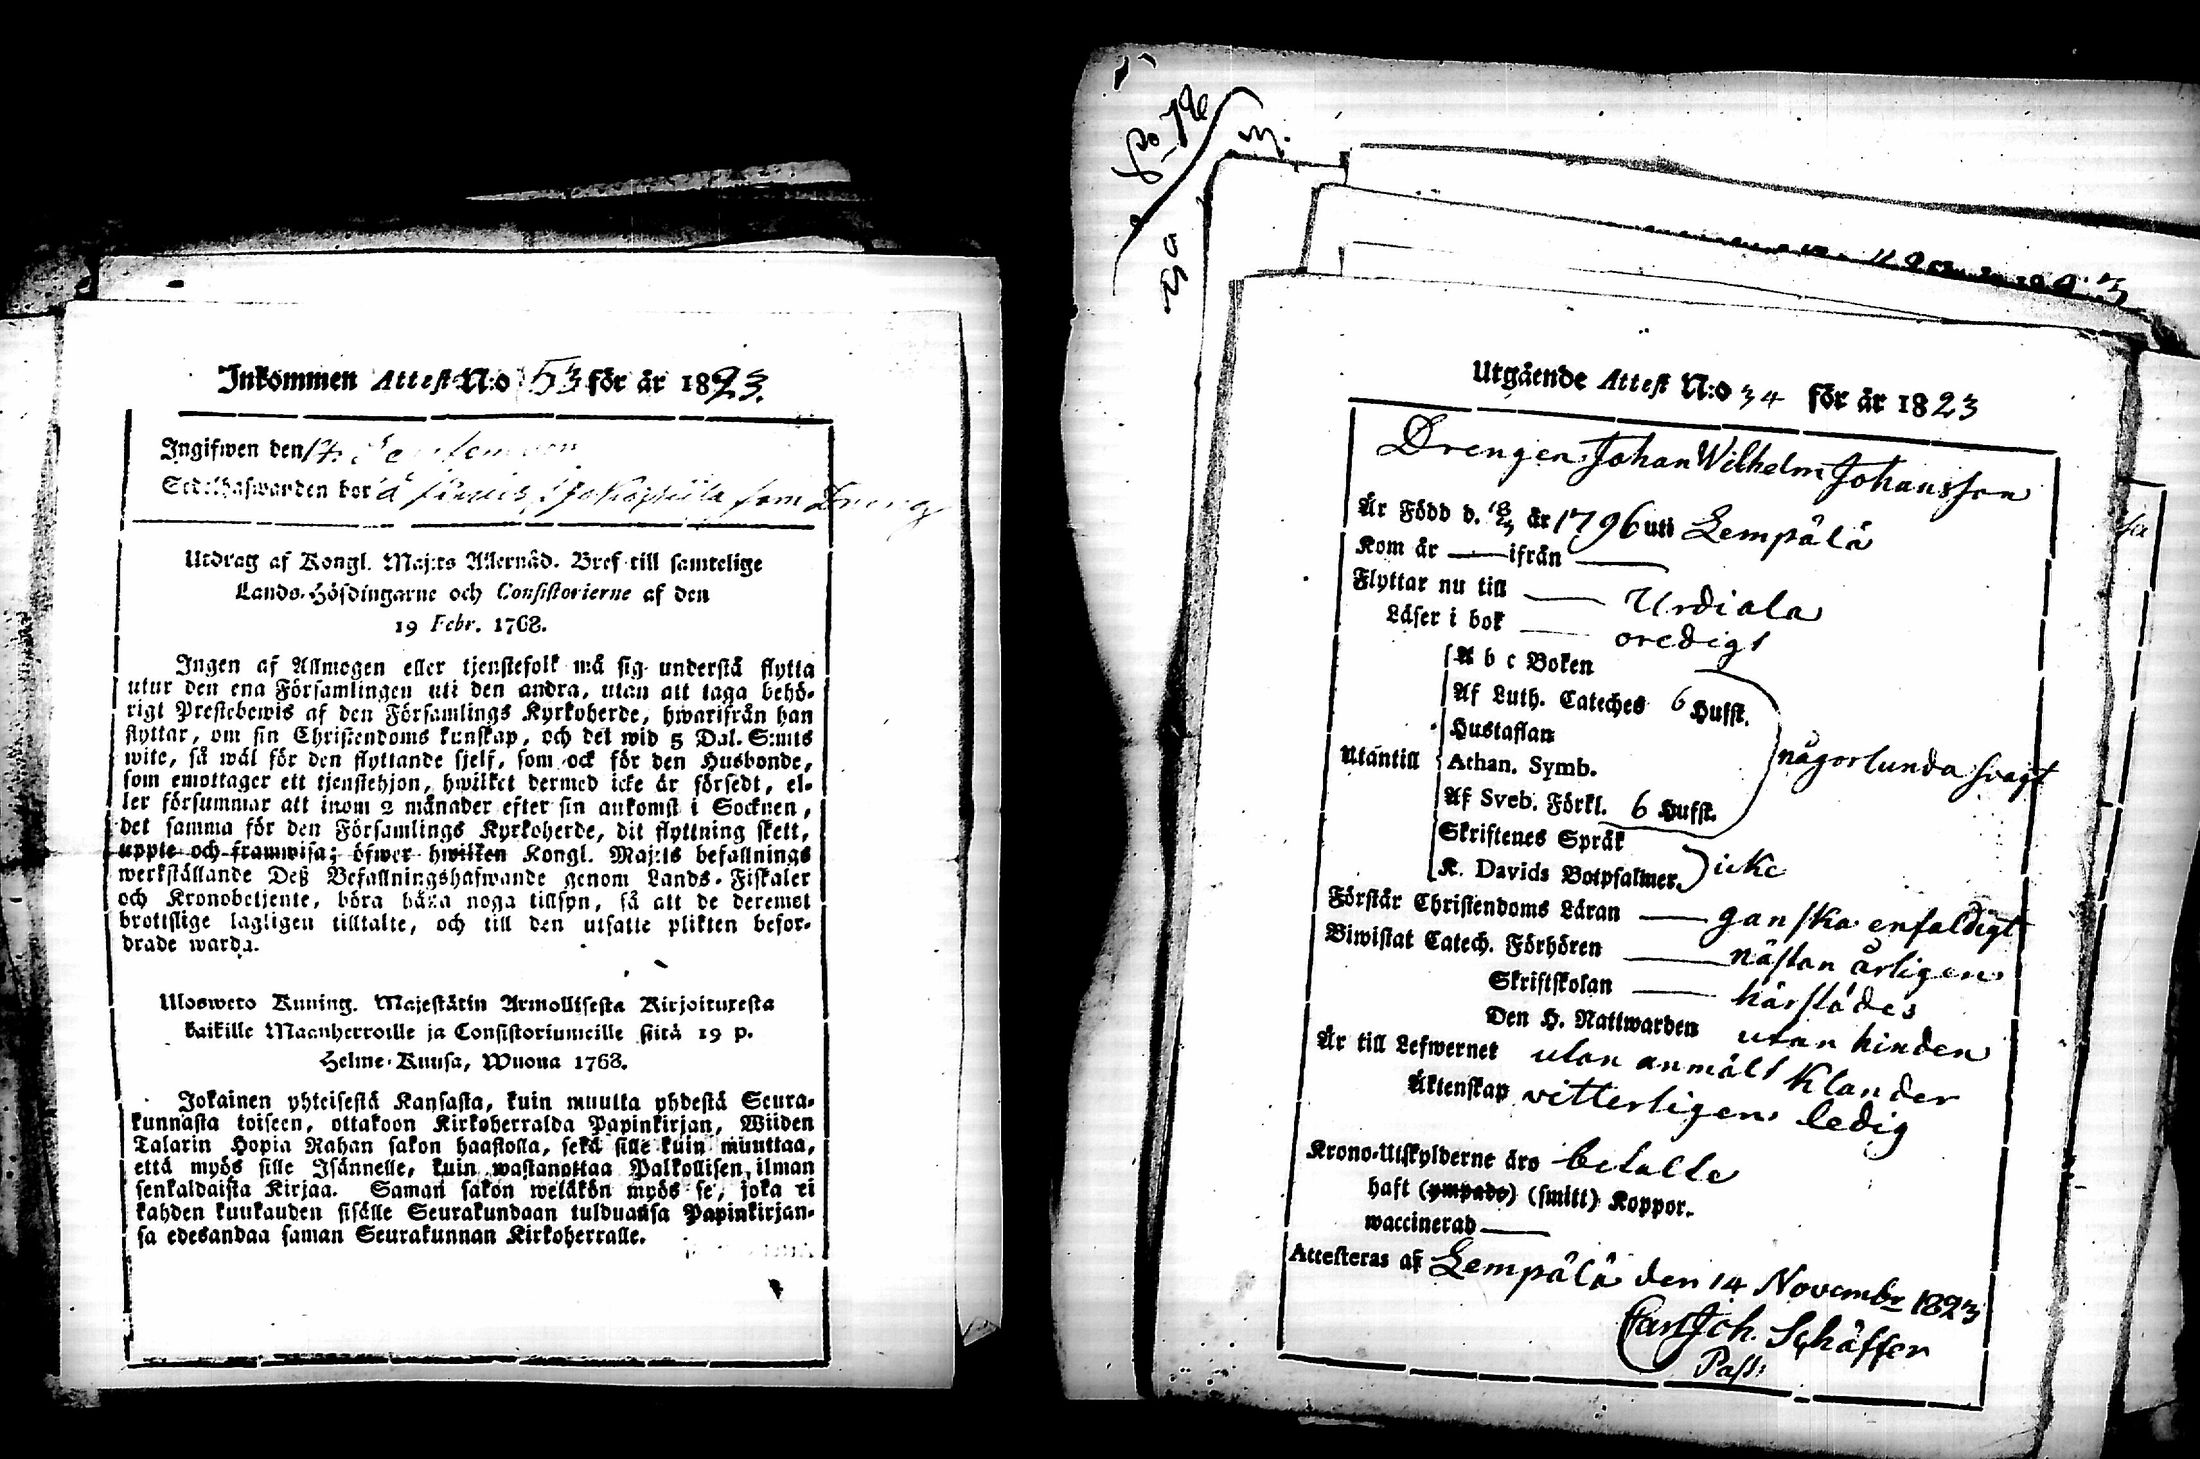 Inkommen Attest N:o 53 för år 1823.
Ingifwen den 17.
Sedelhafwanden bor å som Dreng
Utdrag af Kongl. Maj:ts Allernåd. Bref till samtelige
Lands-Höfdingarne och Consistorierne af den
19 Febr. 1768.
Ingen af Allmogen eller tjenstefolk må sig understå flytta
utur den ena Församlingen uti den andra, utan att taga behö-
rigt Prestebewis af den Församlings Kyrkoherde, hwarifrån han
flyttar, om sin Christendoms kunskap, och det wid 5 Dal. S:mts
wite, så wäl för den flyttande sjelf, som ock för den Husbonde,
som emottager ett tjenstehjon, hwilket dermed icke är försedt, el-
ler försummar att inom 2 månader efter sin ankomst i Socknen,
det samma för den Församlings Kyrkoherde, dit flyttning skett,
uppte och framwisa; öfwer hwilken Kongl. Maj:ts befallnings
werkställande Deß Befallningshafwande genom Lands-Fiskaler
och Kronobetjente, böra bära noga tillsyn, så att de deremot
brottslige lagligen tilltalte, och till den utsatte plikten befor-
drade warda.
Ulosweto Kuning. Majestätin Armollisesta Kirjoituxesta
kaikille Maanherroille ja Consistoriumeille siitä 19 p.
Helme-Kuusa, Wuona 1768.
Jokainen yhteisestä Kansasta, kuin muutta yhdestä Seura-
kunnasta toiseen, ottakoon Kirkoherralda Papinkirjan, Wiiden
Talarin Hopia Rahan sakon haastolla, sekä sille kuin muuttaa,
että myös sille Isännelle, kuin wastanottaa Palkollisen ilman
senkaldaista Kirjaa. Saman sakon wetäkön myös se, joka ei
kahden kuukauden sisälle Seurakundaan tulduansa Papinkirjan-
sa edesandaa saman Seurakunnan Kirkoherralle.
Utgående Attest N:o 34 för år 1823
Drengen Johan Wilhelm Johansson
År Född d. år 1796 uti Lempälä
Kom år ifrån
Flyttar nu till Urdiala
Läser i bok oredigt
A b c Boken
Af Luth. Cateches 6 Hufst.
Hustaflan
Utantill Athan. Symb. någorlunda svagt
Af Sveb. Förkl. 6 Hufst.
Skriftenes Språk
K. Davids Botpsalmer. icke
Förstår Christendoms Läran ganska enfaldigt
Biwistat Catech. Förhören nästan årligen
Skriftskolan härstädes
Den H. Nattwarden utan hinder
Är till Lefwernet utan anmält klander
Äktenskap vitterligen ledig
Krono-Utskylderne äro betalte
haft (ympade) (smitt) Koppor.
waccinerad
Attesteras af Lempälä den 14 Novembr 1823
Carl Joh. Schäffer
Past: